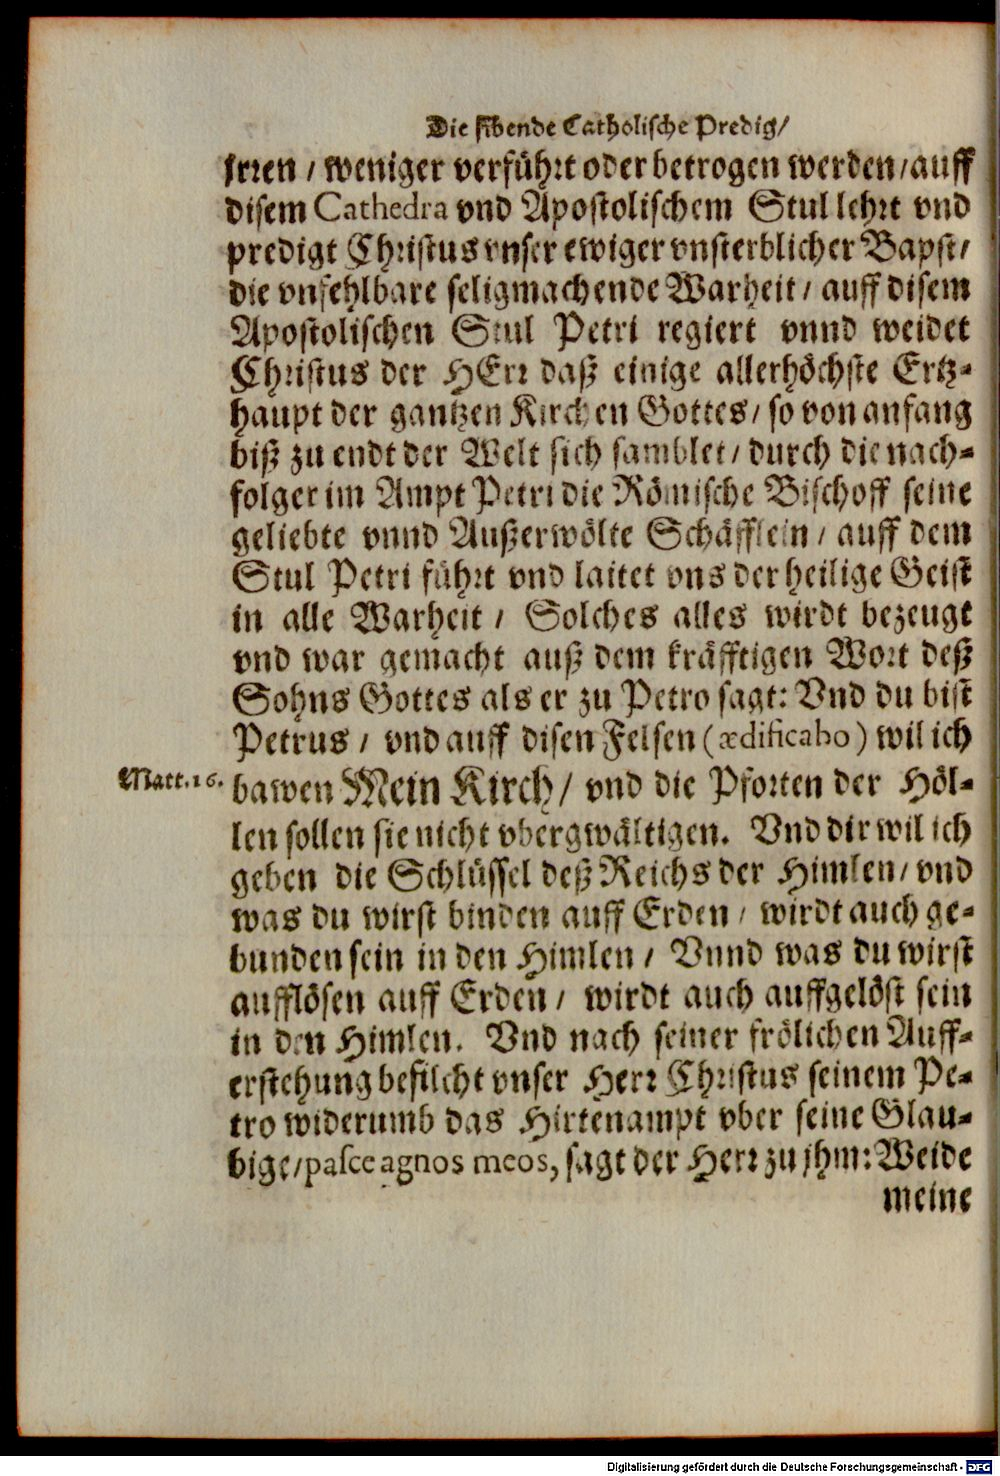 Die sibende Catholische Predig/
jrren / weniger verführt oder betrogen werden/auff
disem Cathedra vnd Apostolischem Stul lehrt vnd
predigt Christus vnser ewiger vnsterblicher Bapst/
die vnfehlbare seligmachende Warheit/ auff disem
Apostolischen Stul Petri regiert vnnd weidet
Christus der HErr daß einige allerhöchste Ertz-
haupt der gantzen Kirchen Gottes/ so von anfang
biß zu endt der Welt sich samblet/ durch die nach-
folger im Ampt Petri die Römische Bischoff seine
geliebte vnnd Außerwölte Schäfflein / auff dem
Stul Petri führt vnd laitet vns der heilige Geist
in alle Warheit / Solches alles wirdt bezeugt
vnd war gemacht auß dem kräfftigen Wort deß
Sohns Gottes als er zu Petro sagt: Vnd du bist
Petrus / vnd auff disen Felsen (ædificabo) wil ich
Matt.16. bawen Mein Kirch/ vnd die Pforten der Höl-
len sollen sie nicht vbergwältigen. Vnd dir wil ich
geben die Schlüssel deß Reichs der Himlen/ vnd
was du wirst binden auff Erden / wirdt auch ge-
bunden sein in den Himlen / Vnnd was du wirst
aufflösen auff Erden/ wirdt auch auffgelöst sein
in den Himlen. Vnd nach seiner frölichen Auff-
erstehung befilcht vnser Herr Christus seinem Pe-
tro widerumb das Hirtenampt vber seine Glau-
bige/pasce agnos meos, sagt der Herr zu jhm: Weide
meine
Digitalisierung gefördert durch die Deutsche Forschungsgemeinschaft - DFG